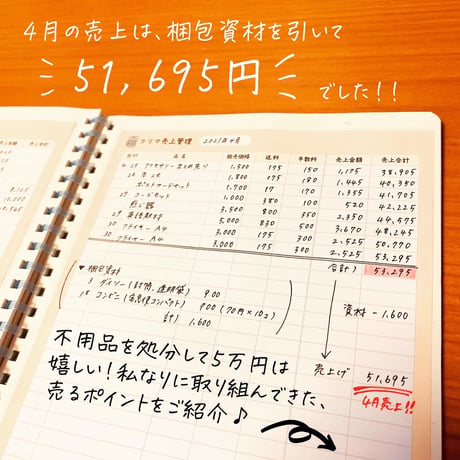 4月の売上は、梱包資材を引いて
51,695円
でした!!
フリマ売上管理 4月
日付 品名 販売価格 送料 手数料 売上金額 売上合計
4.25 アクセサリーまとめ売り 1,500 175 150 1,175 38,905
26 1,800 175 180 1,445 40,350
ポストカードセット 1,700 17 170 1,355 41,705
27 コードセット 1,000 380 100 520 42,225
3,500 800 350 2,350 44,575
29 5,000 830 500 3,670 48,245
30 フライヤー A4 3,000 175 300 2,525 50,770
30 フライヤー A4 3,000 175 300 2,525 53,295
合計) 53,295
▼梱包資材
3 ダイソー(封筒、透明袋) 900
18 コンビニ(宅急便コンパクト) 700(70円×10コ)
計) 1,600
資材 -1,600
売上げ 51,695
4月売上!!
不用品を処分して5万円は
嬉しい!私なりに取り組んできた、
売るポイントをご紹介♪